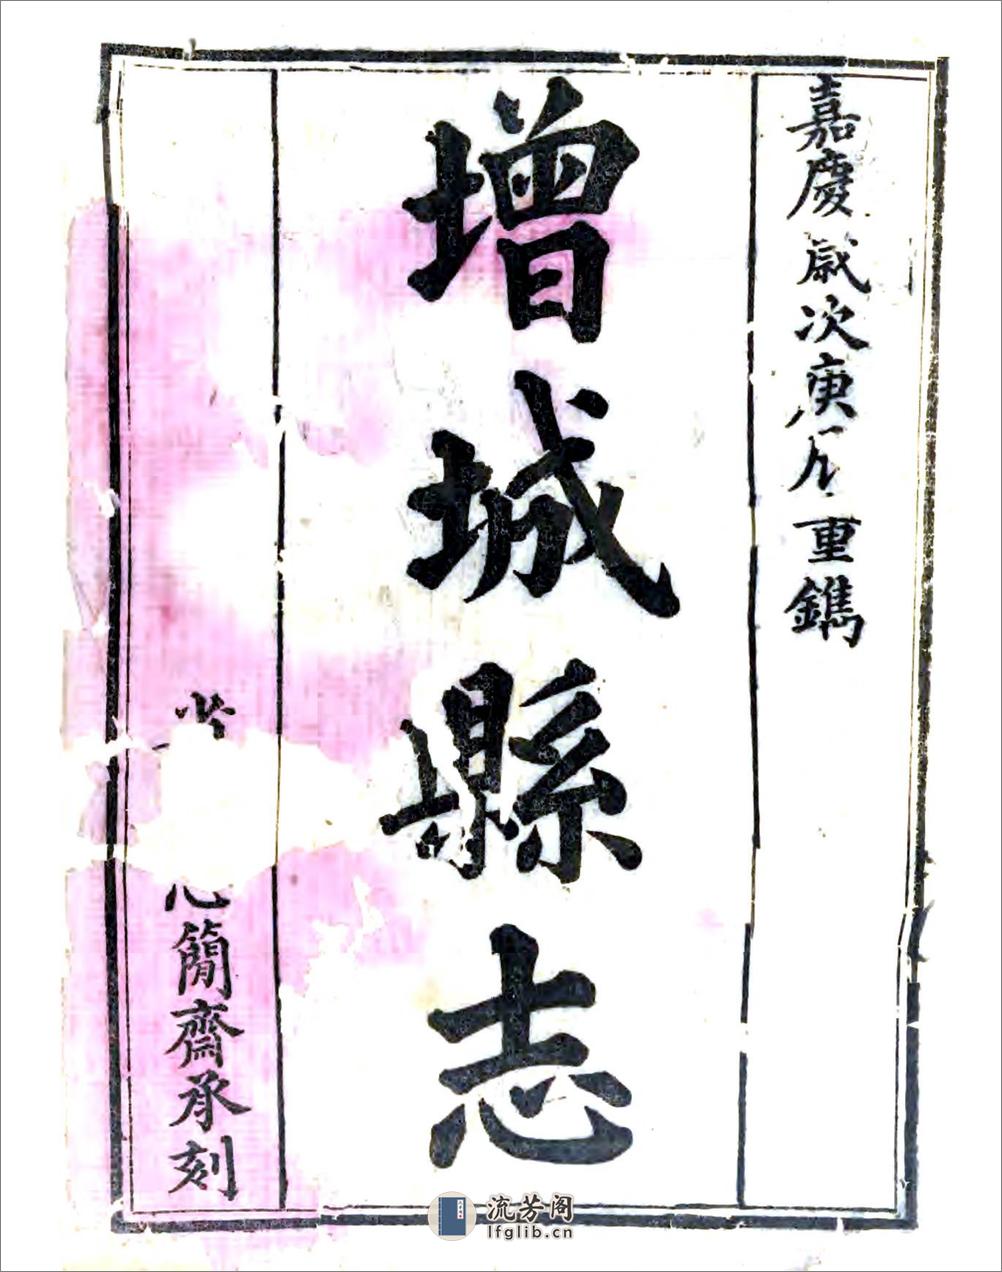 嘉慶歲次庚辰重鐫
增城縣志
簡齋承刻
流芳阁
lfglib.cn